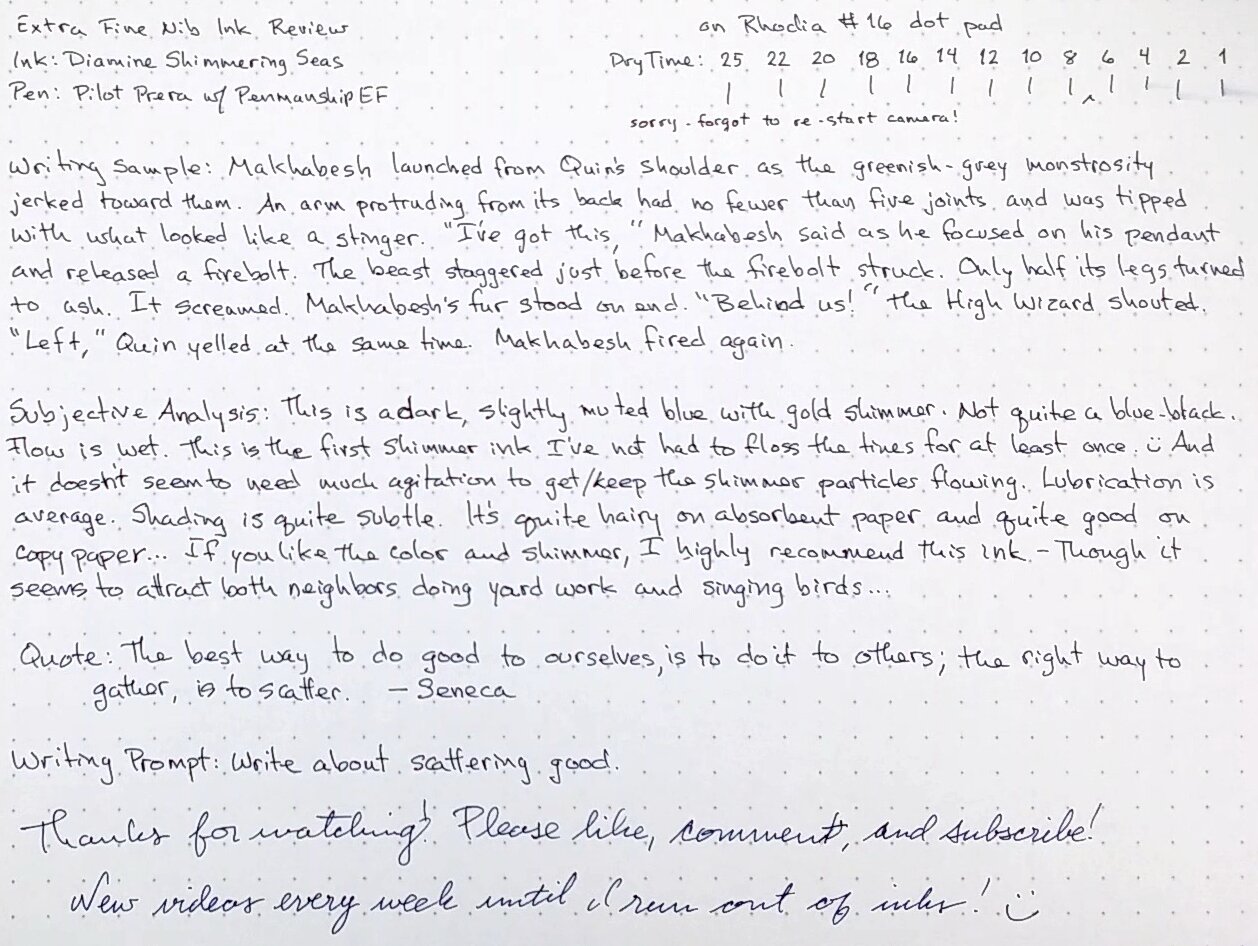 Extra Fine Nib Ink Review
on Rhodia #16 dot pad
Ink: Diamine Shimmering Seas
Dry Time: 25 22 20 18 16 14 12 10 8 6 4 2 1
Pen: Pilot Prera w/ Penmanship EF
sorry - forgot to re-start camera!
Writing Sample: Makhabesh launched from Quin's shoulder as the greenish-grey monstrosity
jerked toward them. An arm protruding from its back had no fewer than five joints and was tipped
with what looked like a stinger. "I've got this," Makhabesh said as he focused on his pendant
and released a firebolt. The beast staggered just before the firebolt struck. Only half its legs turned
to ash. It screamed. Makhabesh's fur stood on end. "Behind us!" the High Wizard shouted.
"Left," Quin yelled at the same time. Makhabesh fired again.
Subjective Analysis: This is a dark, slightly muted blue with gold shimmer. Not quite a blue-black.
Flow is wet. This is the first shimmer ink I've not had to floss the tines for at least once. :) And
it doesn't seem to need much agitation to get/keep the shimmer particles flowing. Lubrication is
average. Shading is quite subtle. It's quite hairy on absorbent paper and quite good on
copy paper... If you like the color and shimmer, I highly recommend this ink - Though it
seems to attract both neighbors doing yard work and singing birds...
Quote: The best way to do good to ourselves, is to do it to others; the right way to
gather, is to scatter. - Seneca
Writing Prompt: Write about scattering good.
Thanks for watching! Please like, comment, and subscribe!
New videos every week until I run out of inks! :)